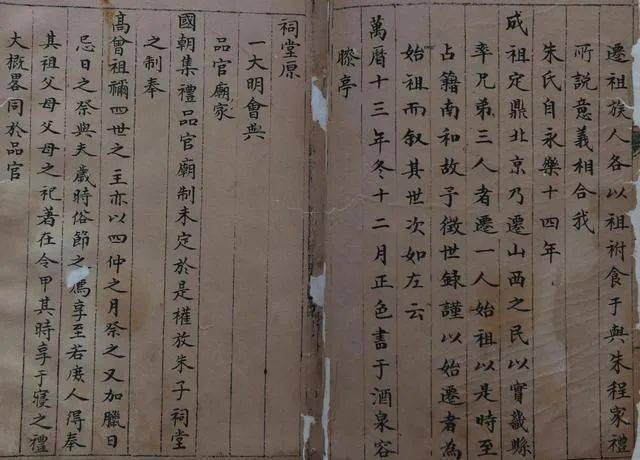 遷祖族人各以祖祔食于與朱程家禮
所説意義相合我
朱氏自永樂十四年
成祖定鼎北京乃遷山西之民以實畿縣
率兄弟三人者遷一人始祖以是時至
占籍南和故予徵世録謹以始遷者為
始祖而叙其世次如左云
萬曆十三年冬十二月正色書于酒泉容
膝亭
祠堂原
一大明會典
品官廟家
國朝集禮品官廟制未定於是權放朱子祠堂
之制奉
髙曾祖禰四世之主亦以四仲之月祭之又加臘日
忌日之祭與夫歲時俗節之薦享至若庶人得奉
其祖父母父母之祀著在令甲其時享于寢之禮
大槩畧同於品官